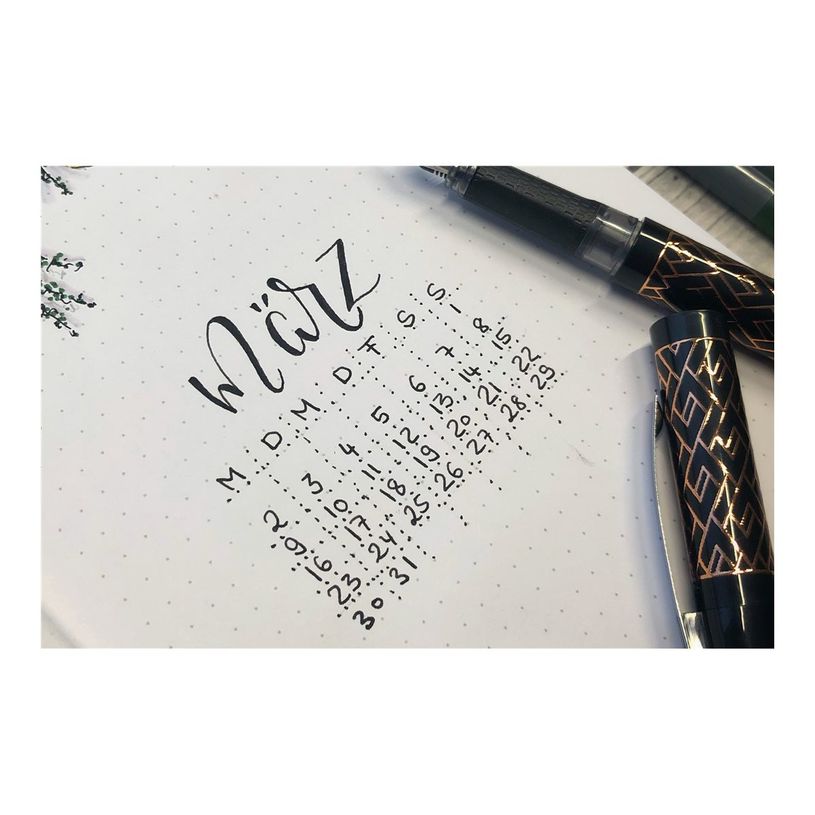 März
M D M D F S S
1
2 3 4 5 6 7 8
9 10 11 12 13 14 15
16 17 18 19 20 21 22
23 24 25 26 27 28 29
30 31